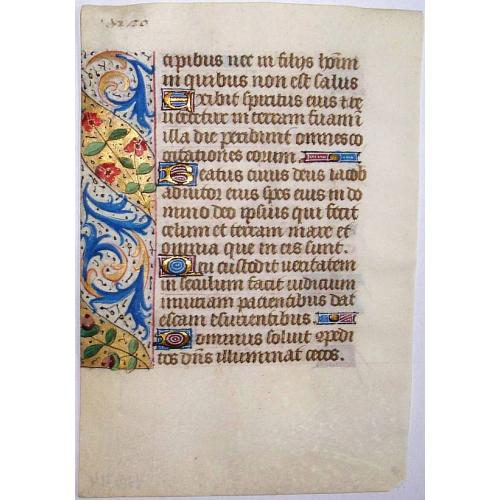 cipibus nec in filijs hoīm
in quibus non est salus
Exibit spiritus eius et re
uertetur in terram suam ī
illa die peribunt omnes co
gitationes eorum.
Beatus cuius deus iacob
adiutor eius spes eius in do
mino deo ipsius qui fecit
celum et terram mare et
omnia que in eis sunt.
Qui custodit ueritatem
in seculum facit iudicium
iniuriam pacientibus dat
escam esurientibus.
Dominus soluit 9pedi
tos dn̄s illuminat cecos.